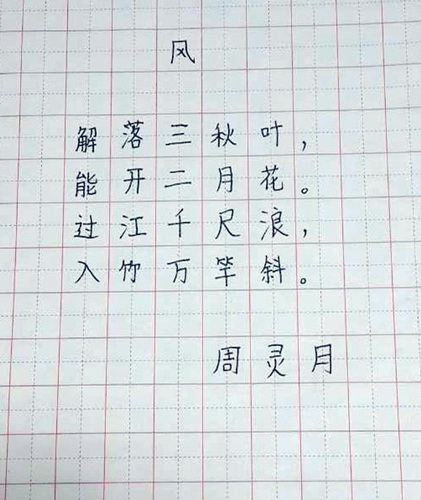 风
解落三秋叶，
能开二月花。
过江千尺浪，
入竹万竿斜。
周灵月